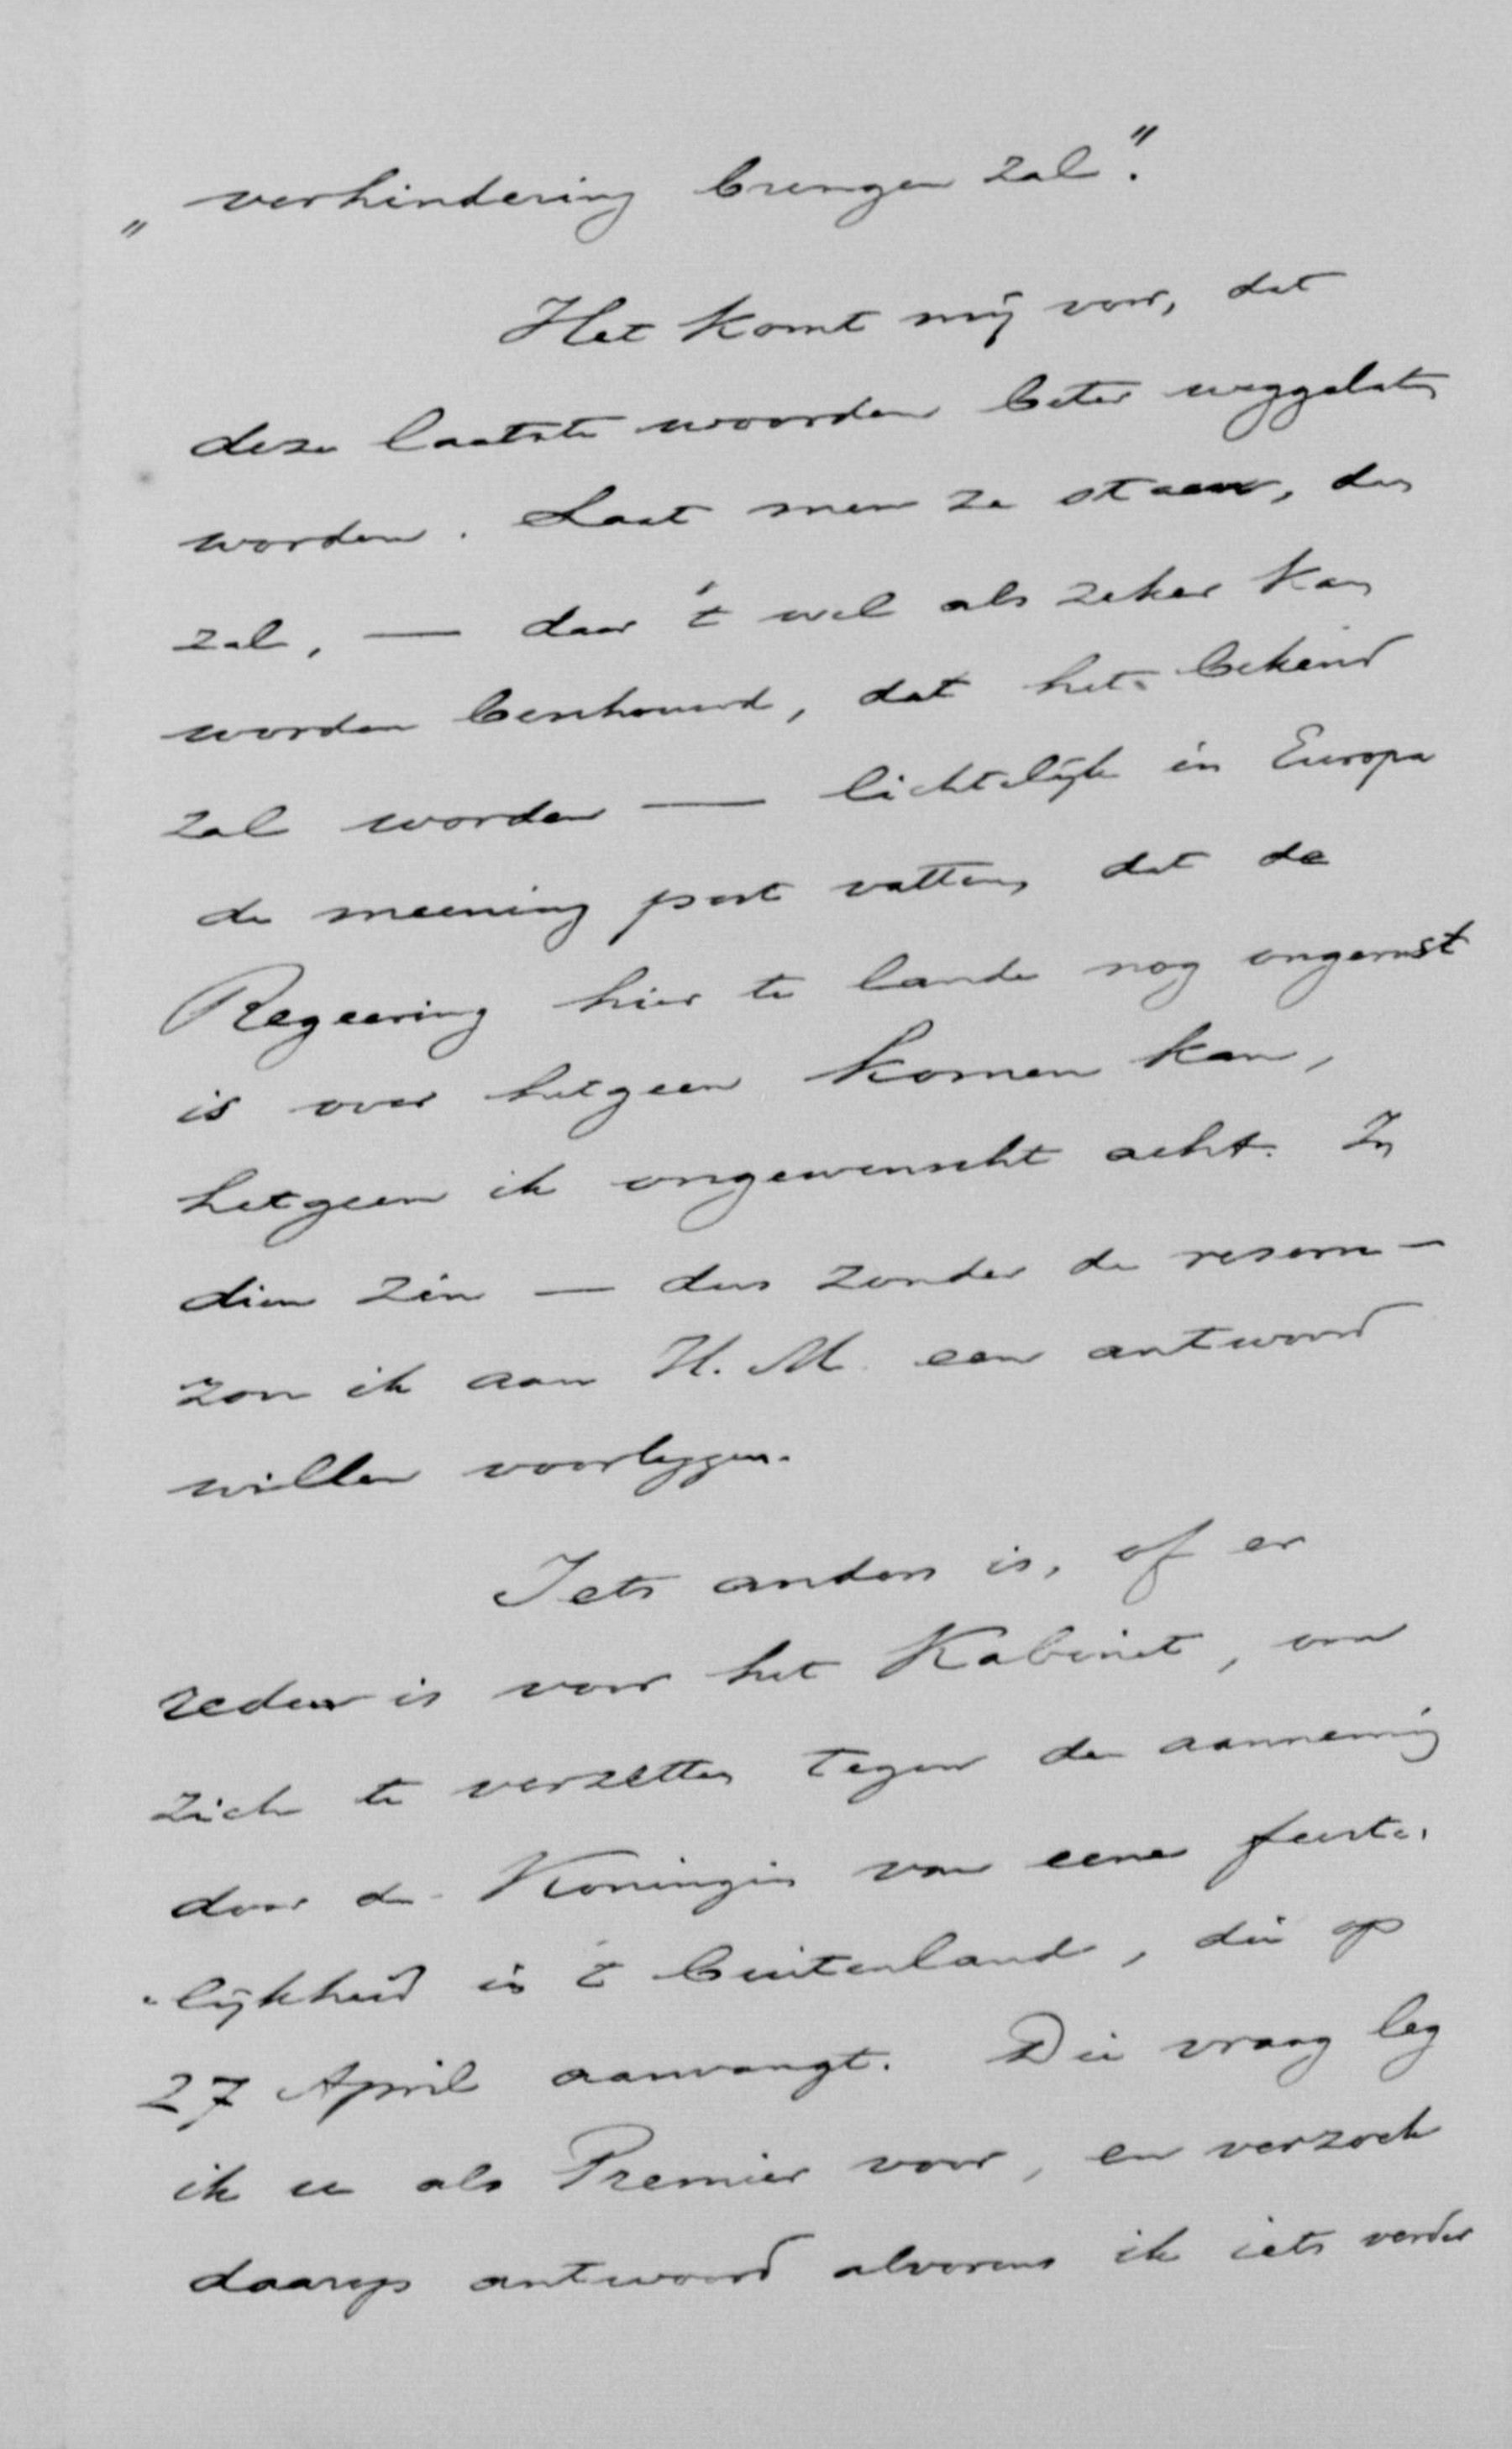 „ verhindering brengen zal".
Het komt mij voor, dat
deze laatste woorden beter weggelaten
worden. Laat men ze staan, dan
zal, — daar 't wel als zeker kan
worden beschouwd, dat het bekend
zal worden — lichtelijk in Europa
de meening post vatten, dat de
Regeering hier te lande nog ongerust
is over hetgeen komen kan,
hetgeen ik ongewenscht acht. In
dien zin — dus zonder de reserve —
zou ik aan H. M. een antwoord
willen voorleggen.
Iets anders is, of er
reden is voor het Kabinet, om
zich te verzetten tegen de aanneming
door de Koningin van eene feeste-
-lijkheid in 't buitenland, die op
27 April aanvangt. Die vraag leg
ik u als Premier voor, en verzoek
daarop antwoord alvorens ik iets verder